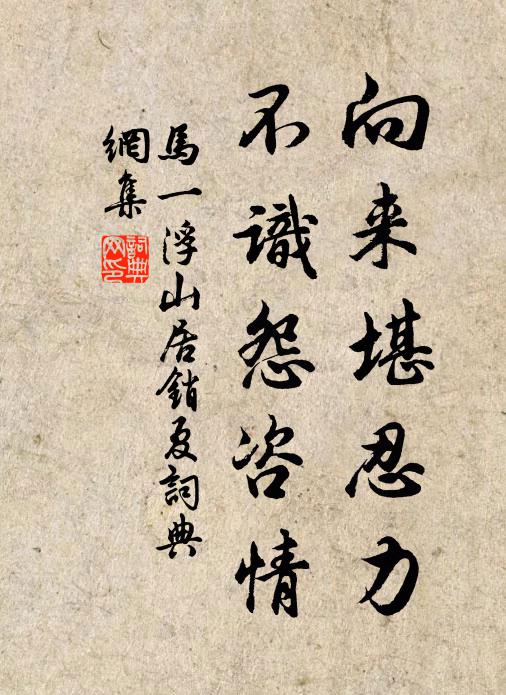 向来堪忍力
不識怨咨情
馬一浮山居銷夏詞典
網集
詞典
网印